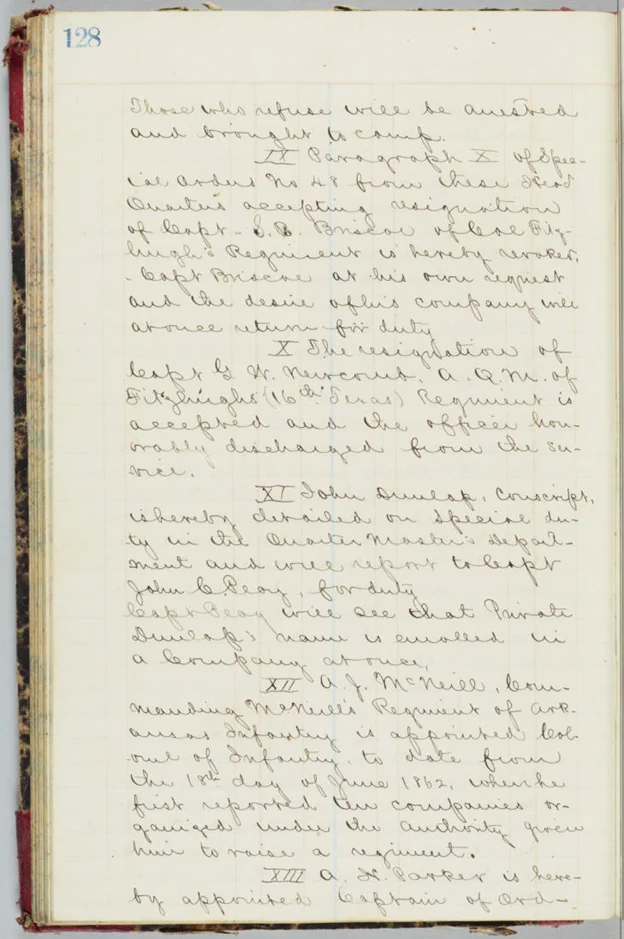 128
Those who refuse will be arrested
and brought to camp.
IX Paragraph X of Spec-
ial Orders No 48 from these Head
Quarters accepting resignation
of Capt. S. B. Briscoe of Col Fitz-
hugh's Regiment is hereby revoked,
Capt Briscoe at his own request
and the desire of his company will
at once return for duty
X The resignation of
Capt G W. Newcomb, A. Q. M. of
Fitzhughs (16th Texas) Regiment is
accepted and the officer hon-
orably discharged from the ser-
vice.
XI John Dunlap, Conscript,
is hereby detailed on Special du-
ty in the Quarter Master's Depart-
ment and will report to Capt
John C Peay, for duty
Capt Peay will see that Private
Dunlap's name is enrolled in
a Company at once,
XII A. J. McNeill, Com-
manding McNeill's Regiment of Ark-
ansas Infantry is appointed Col-
onel of Infantry, to date from
the 18th day of June 1862, when he
first reported ten companies or-
ganized under the authority given
him to raise a regiment.
XIII A. W. Parker is here-
by appointed Captain of Ord-